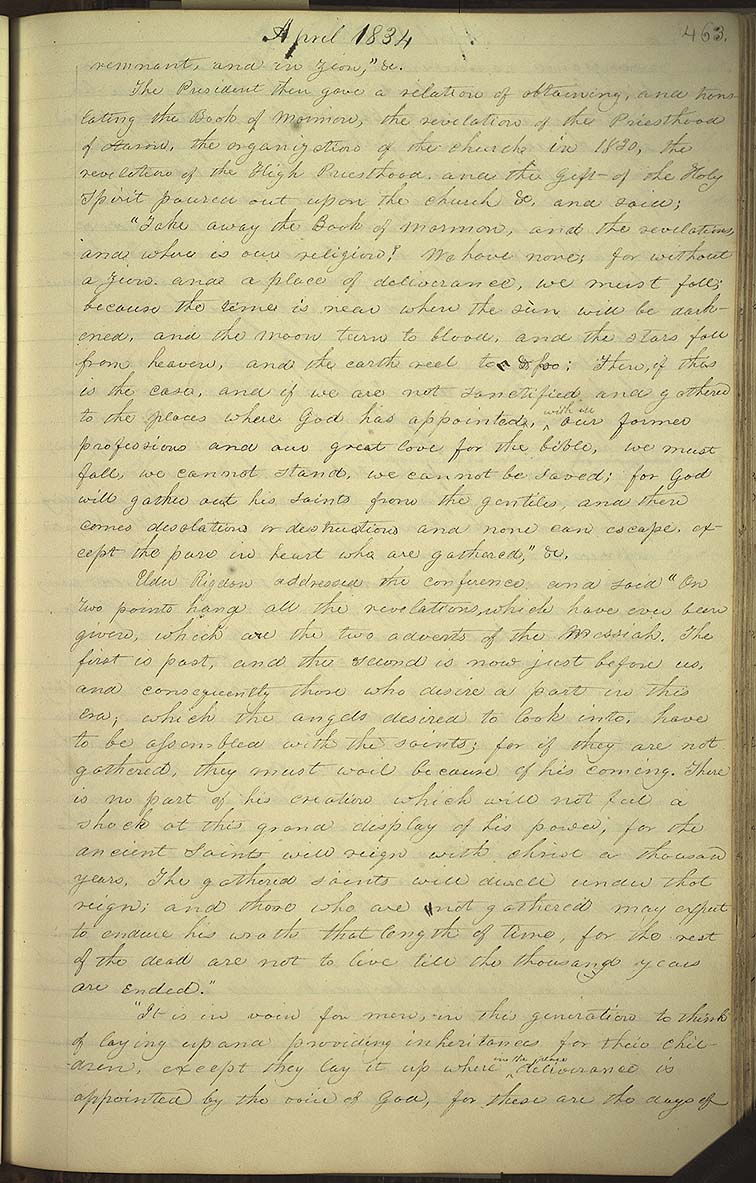 April 1834
463.
remnant, and in Zion," &c.
The President then gave a relation of obtaining, and trans-
lating the Book of Mormon, the revelation of the Priesthood
of Aaron, the organization of the church in 1830, the
revelation of the High Priesthood, and the gift of the Holy
Spirit poured out upon the church &c. and said;
"Take away the Book of Mormon, and the revelations,
and where is our religion? We have none; for without
a Zion. and a place of deliverance, we must fall;
because the time is near when the sun will be dark-
ened, and the moon turn to blood, and the stars fall
from heaven, and the earth reel to & fro: Then, if this
is the case, and if we are not sanctified and gathered
to the places where God has appointed, with all our former
professions and our great love for the bible, we must
fall, we cannot stand, we cannot be saved; for God
will gather out his saints from the gentiles, and then
comes desolation or destruction and none can escape. ex-
cept the pure in heart who are gathered," &c.
Elder Rigdon addressed the conference and said "On
two points hang all the revelations, which have ever been
given, which are the two advents of the Messiah. The
first is past, and the second is now just before us,
and consequently those who desire a part in this
era; which the angels desired to look into, have
to be assembled with the saints; for if they are not
gathered, they must wail because of his coming. There
is no part of his creation which will not feel a
shock at this grand display of his power; for the
ancient Saints will reign with Christ a thousand
years. The gathered saints will dwell under that
reign; and those who are not gathered may expect
to endure his wrath that length of time, for the rest
of the dead are not to live till the thousand years
are ended."
"It is in vain for men, in this generation to think
of laying up and providing inheritances for their chil-
dren, except they lay it up where in the place deliverance is
appointed by the voice of God, for these are the days of